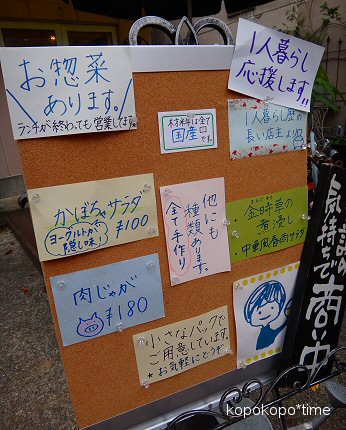 お惣菜
あります。
ランチが終わっても営業してます。
1人暮らし
応援します!!
材料は全て
国産
です。
1人暮らし歴の
長い店主より
かぼちゃサラダ
ヨーグルトが
隠し味!
¥100
他にも
種類あります。
全て手作り
金時草の
煮浸し
・中華風春雨サラダ
肉じゃが
¥180
小さなパックで
ご用意しています。
★お気軽にどうぞ
気持ちで
商い中
kopokopo*time